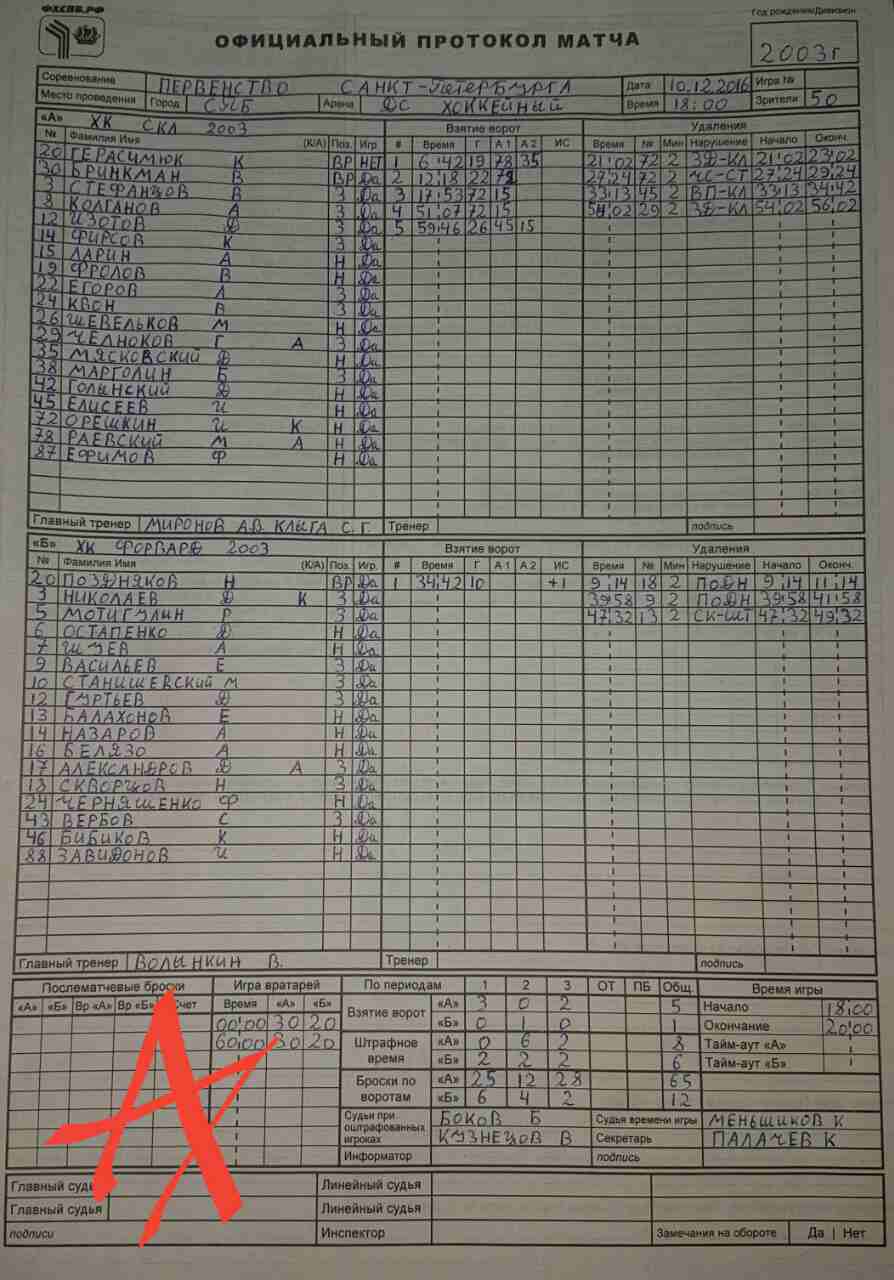 ФХСПБ.РФ
Год рождения/Дивизион
ОФИЦИАЛЬНЫЙ ПРОТОКОЛ МАТЧА
2003г
Соревнование ПЕРВЕНСТВО САНКТ-ПЕТЕРБУРГА Дата 10.12.2016 Игра №
Место проведения Город СПБ Арена ДС ХОККЕЙНЫЙ Время 18:00 Зрители 50
«А» ХК СКА 2003 Взятие ворот Удаления
№ Фамилия Имя (К/А) Поз. Игр. # Время Г А 1 А 2 ИС Время № Мин Нарушение Начало Оконч.
20 ГЕРАСИМЮК К ВР НЕТ 1 6:42 19 78 35 21:02 72 2 ЗД-КЛ 21:02 23:02
30 БРИНКМАН В ВР Да 2 12:18 22 78 27:24 72 2 ЧС-СТ 27:24 29:24
3 СТЕФАНЦОВ В З Да 3 17:53 72 15 33:13 45 2 ВП-КЛ 33:13 34:42
8 КОЛГАНОВ А З Да 4 51:07 72 15 54:02 29 2 ЗД-КЛ 54:02 56:02
12 ИЗОТОВ Д З Да 5 59:46 26 45 15
14 ФИРСОВ К З Да
15 ЛАРИН А Н Да
19 ФРОЛОВ В Н Да
22 ЕГОРОВ А З Да
24 КВОН В З Да
26 ШЕВЕЛЬКОВ М Н Да
29 ЧЕЛНОКОВ Г А З Да
35 МЯСКОВСКИЙ Д Н Да
38 МАРГОЛИН Б З Да
42 ГОЛЫНСКИЙ Д Н Да
45 ЕЛИСЕЕВ И Н Да
72 ОРЕШКИН И К Н Да
78 РАЕВСКИЙ М А Н Да
87 ЕФИМОВ Ф Н Да
Главный тренер МИРОНОВ А.В. КЛЫГА С. Г. Тренер подпись
«Б» ХК ФОРВАРД 2003 Взятие ворот Удаления
№ Фамилия Имя (К/А) Поз. Игр. # Время Г А 1 А 2 ИС Время № Мин Нарушение Начало Оконч.
20 ПОЗДНЯКОВ Н ВР Да 1 34:42 10 +1 9:14 18 2 ПОДН 9:14 11:14
3 НИКОЛАЕВ Д К З Да 39:58 9 2 ПОДН 39:58 41:58
5 МОТИГУЛИН Р З Да 47:32 13 2 СК-ШТ 47:32 49:32
6 ОСТАПЕНКО Д Н Да
7 ШУЕВ А Н Да
9 ВАСИЛЬЕВ Е З Да
10 СТАНИШЕВСКИЙ М З Да
12 ГУРТЬЕВ Д З Да
13 БАЛАХОНОВ Е Н Да
14 НАЗАРОВ А Н Да
16 БЕЛЯЗО А Н Да
17 АЛЕКСАНДРОВ Д А З Да
18 СКВОРЦОВ Н З Да
24 ЧЕРНЯШЕНКО Ф Н Да
43 ВЕРБОВ С З Да
46 БИБИКОВ К Н Да
88 ЗАВИДОНОВ И Н Да
Главный тренер ВОЛЫНКИН В. Тренер подпись
Послематчевые броски Игра вратарей По периодам 1 2 3 ОТ ПБ Общ. Время игры
«А» «Б» Вр «А» Вр «Б» Счет Время «А» «Б»
Взятие ворот «А» 3 0 2 5 Начало 18:00
00:00 30 20 «Б» 0 1 0 1 Окончание 20:00
60:00 30 20 Штрафное время «А» 0 6 2 8 Тайм-аут «А»
«Б» 2 2 2 6 Тайм-аут «Б»
Броски по воротам «А» 25 12 28 65
«Б» 6 4 2 12
Судьи при оштрафованных игроках БОКОВ Б Судья времени игры МЕНЬШИКОВ К
КУЗНЕЦОВ В Секретарь ПАЛАЧЕВ К
Информатор подпись
Главный судья Линейный судья
Главный судья Линейный судья
подписи Инспектор Замечания на обороте Да | Нет
А